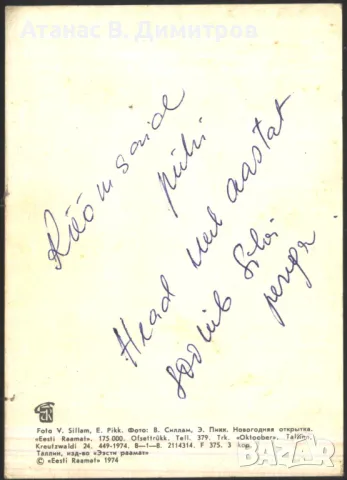 Атанас В. Димитров
Rõõmsaid
pühi
Head uut aastat
soovib Silvi
perega
Foto V. Sillam, E. Pikk. Фото: В. Силлам, Э. Пикк. Новогодняя открытка.
«Eesti Raamat». 175 000. Ofsettrükk. Tell. 379. Trk. «Oktoober». Tallinn,
Kreutzwaldi 24. 449-1974. B—1—8. 2114314. F 375. 3 kop.
Таллин, изд-во «Ээсти раамат»
© «Eesti Raamat» 1974
BAZAR
.BG